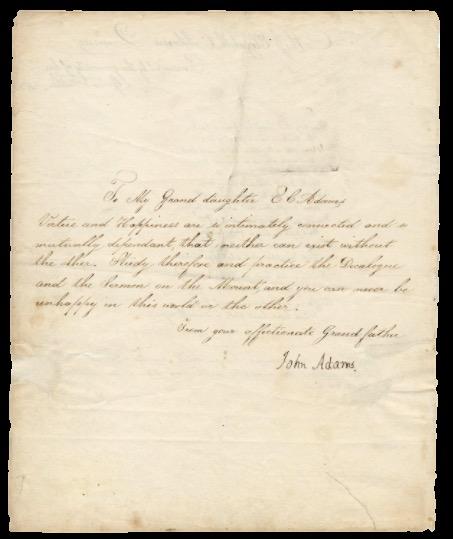 To My Grand daughter E C Adams
Virtue and Happiness are so intimately connected and so
mutually dependant, that neither can exist without
the other. Study therefore and practice the Decalogue
and the Sermon on the Mount and you can never be
unhappy in this world or the other.
From your affectionate Grand father
John Adams.